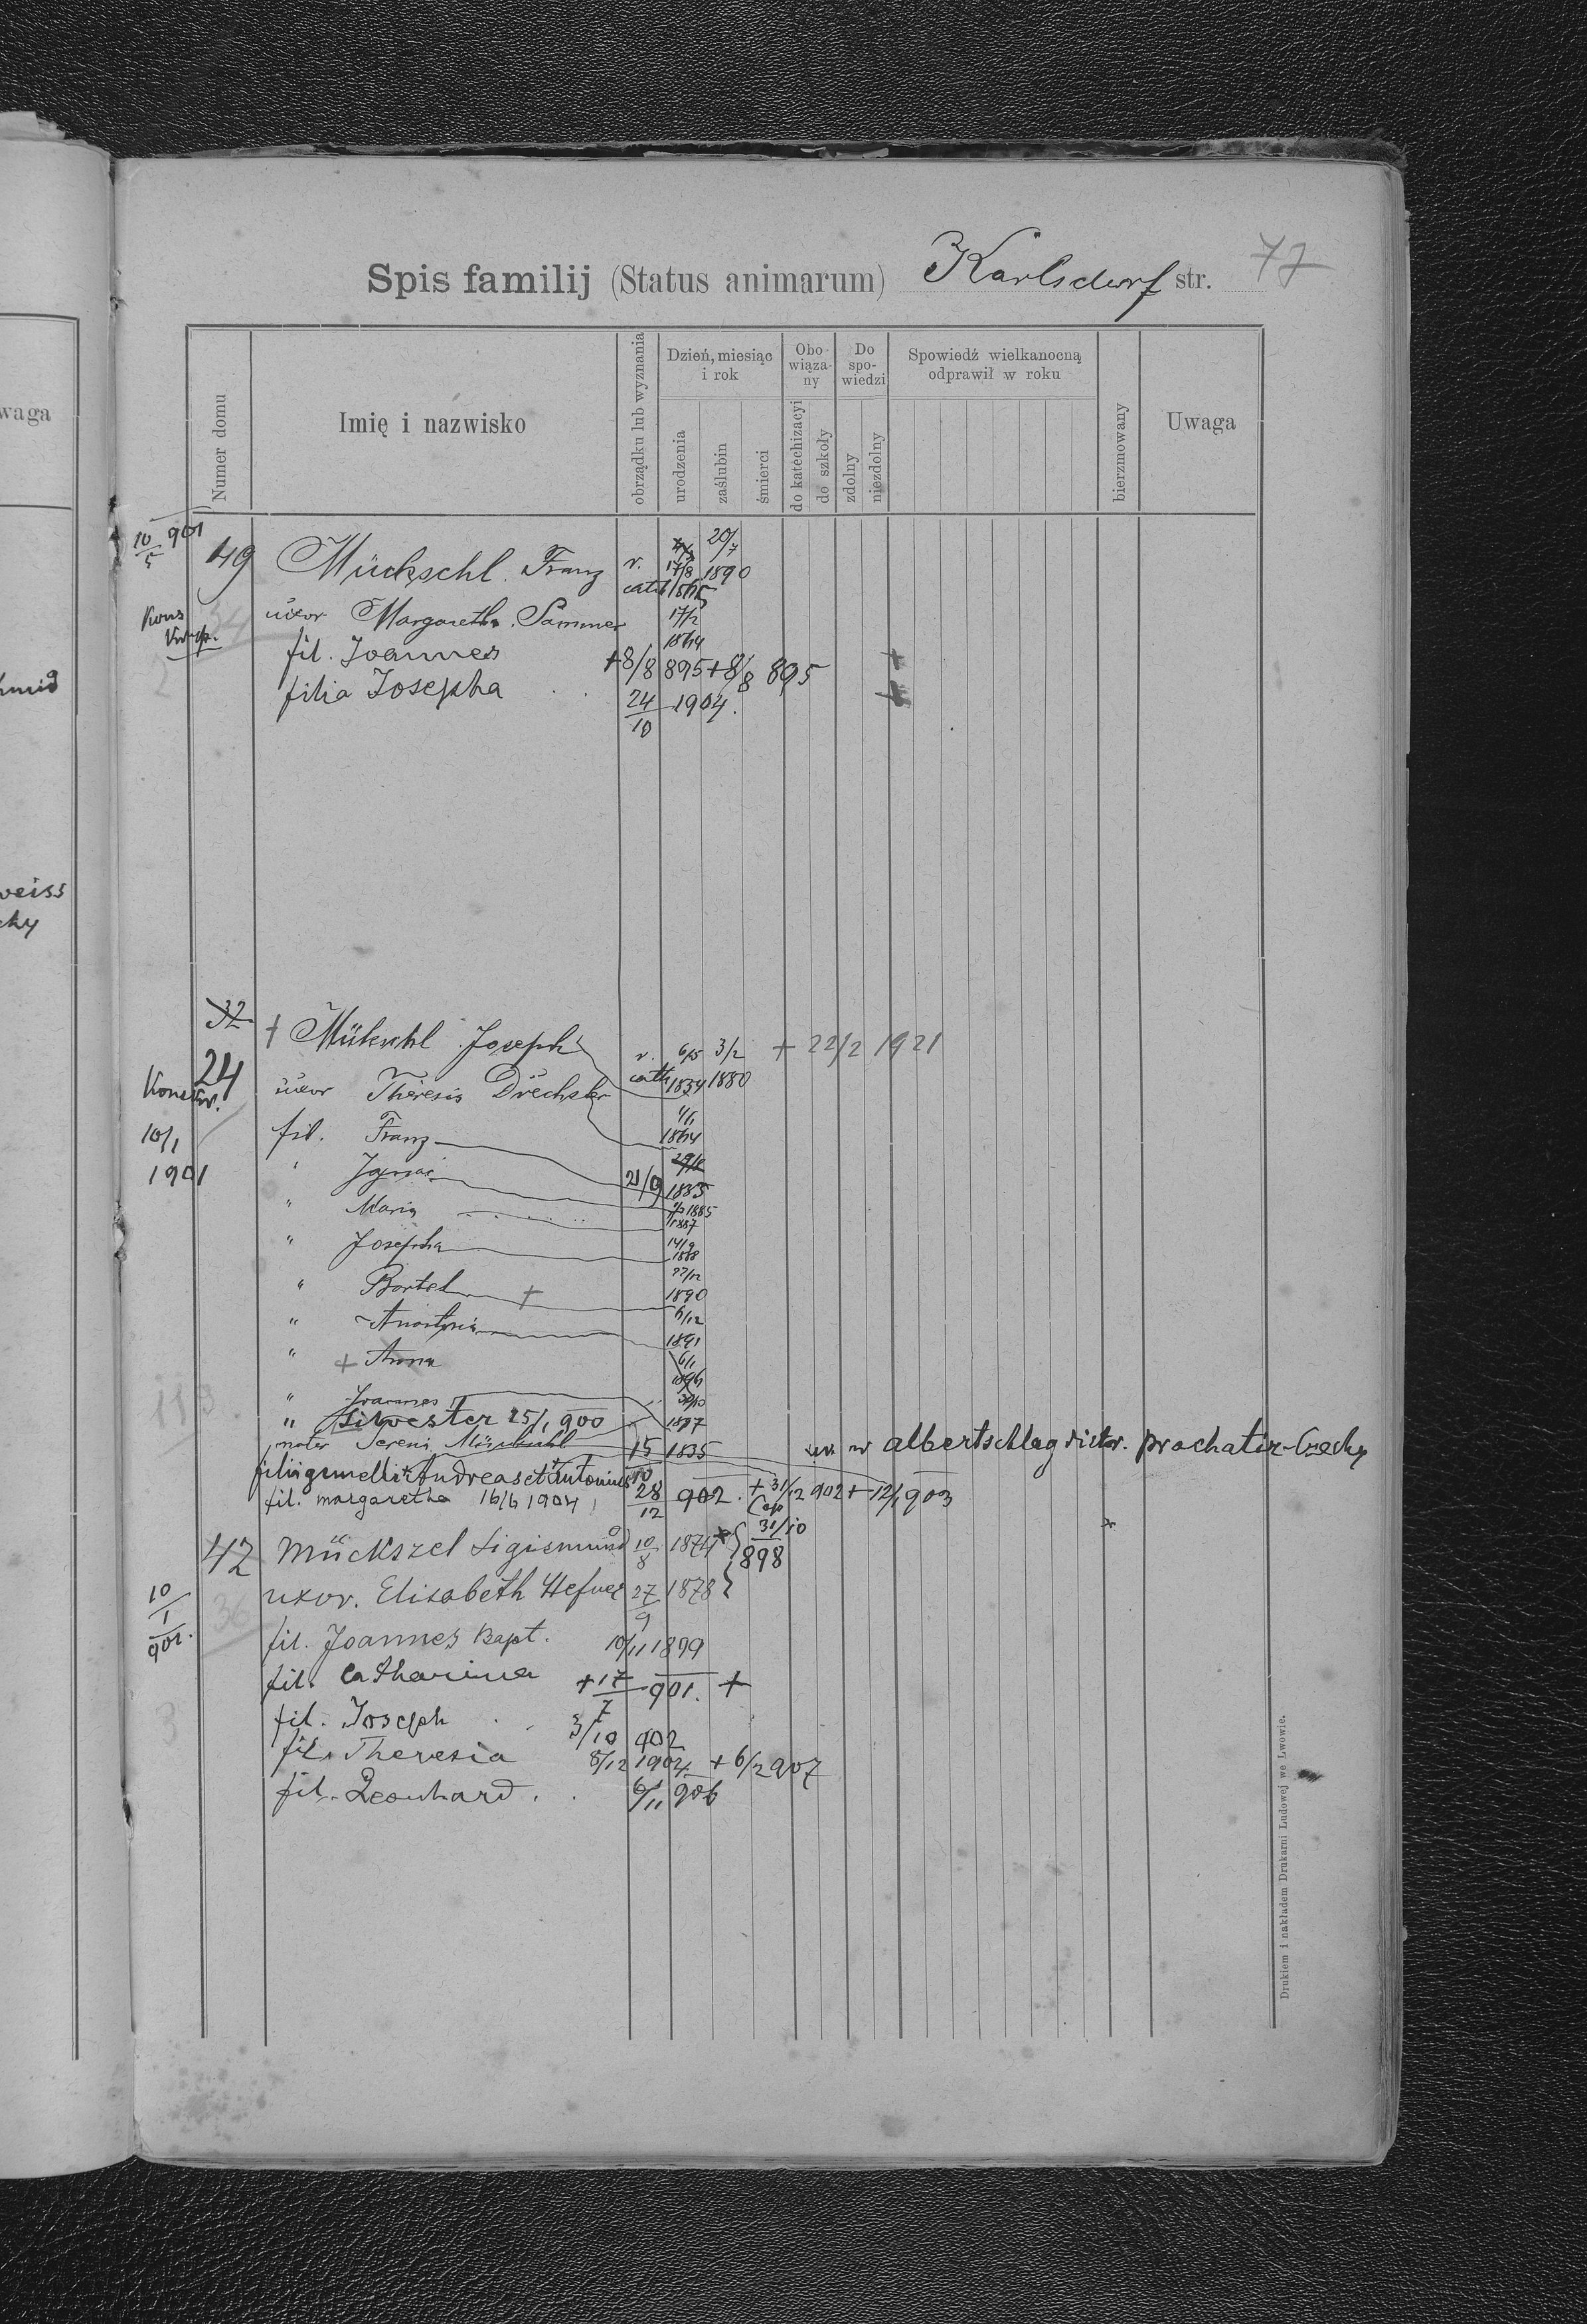 Spis familij (Status animarum) Karlsdorf str. 77
waga
Numer domu
Imię i nazwisko
obrządku lub wyznania
Dzień, miesiąc i rok
urodzenia
zaślubin
śmierci
Obowiązany
do katechizacyi
do szkoły
Do spowiedzi
zdolny
niezdolny
Spowiedź wielkanocną odprawił w roku
bierzmowany
Uwaga
10/5 901 49 Mückschl. Franz r. cath 17/8 20/7 1890
uxor Margaretha Sammer 17/2 1864
fil. Joannes +8/8 895 +8/8 895
filia Josepha 24/10 1904.
weiss
chy
32 + Mükschl Joseph r. cath 6/5 1854 3/2 1880 + 22/2 1921
24 uxor Theresia Drechsler 1864
10/1 1901 fil. Franz
" Ignac 21/9 1885
" Maria 1887
" Josepha 14/9 1888
" Bartel + 22/12 1890
" Anastasia 6/12 1891
" + Anna 6/1 1896
" Joannes 1897
" Silvester 25/1 900
mater 15/10 1835 ur. w Albertschlag Prochatiz-Czechy
filii gemelli + Andreas et + Antonius 28/12 902. + 31/12 902 + 12/1 903
fil. Margaretha 16/6 1904
42 Mückszel Sigismund 10/8 1874 Cop 31/10 898
10/1 902. 36 uxor. Elisabeth Hefner 27/9 1878
fil. Joannes Bapt. 10/11 1899
fil. Catharina +17/7 901. +
3 fil. Joseph 3/10 902
fil. Theresia 8/12 1904. + 6/2 907
fil. Leonhard. 6/11 906
Drukiem i nakładem Drukarni Ludowej we Lwowie.